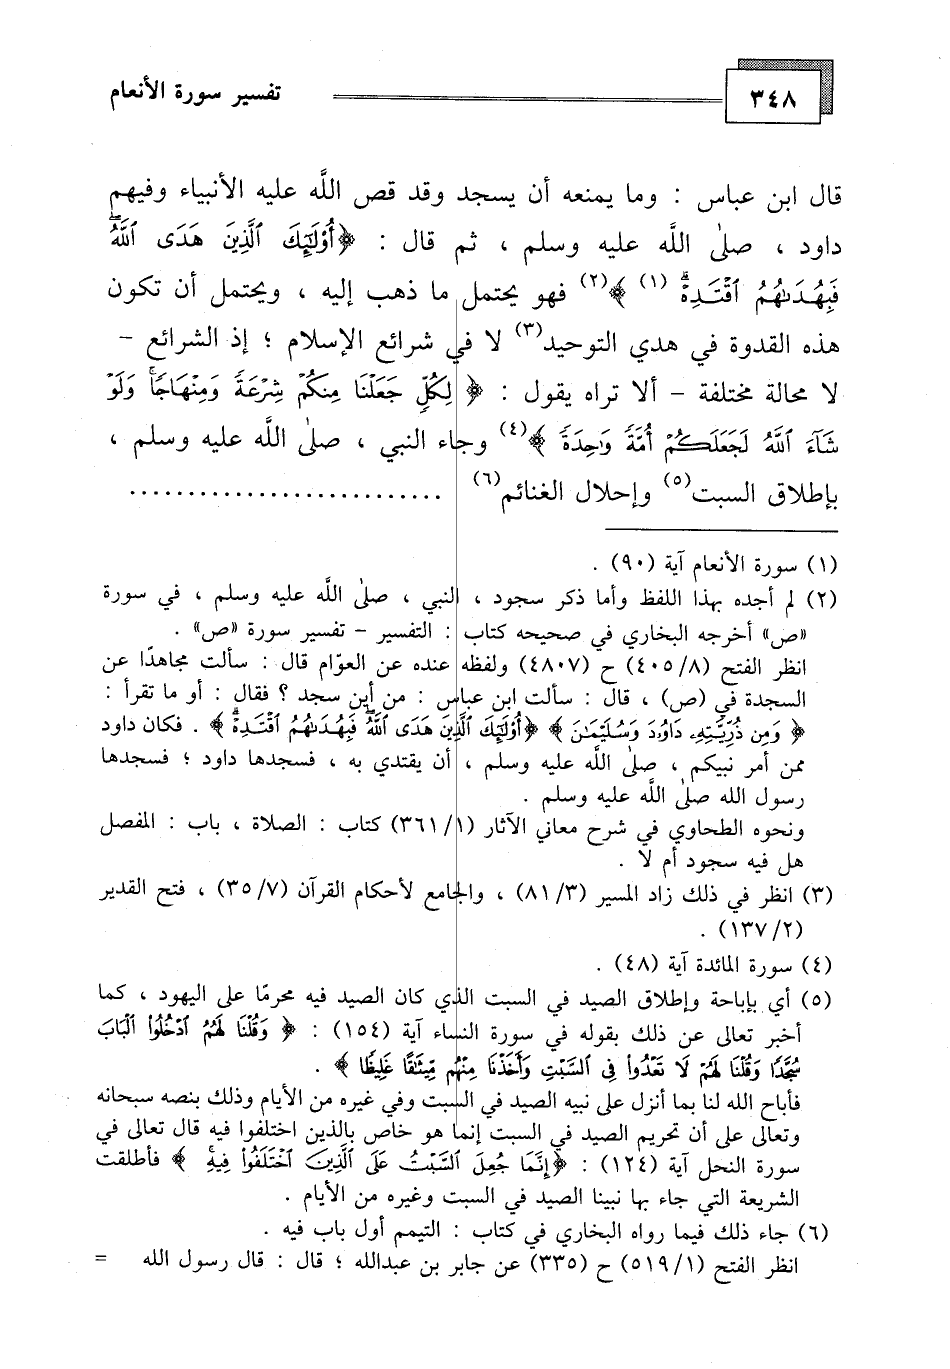 ٣٤٨
تفسير سورة الأنعام
قال ابن عباس : وما يمنعه أن يسجد وقد قص اللَّه عليه الأنبياء وفيهم
داود ، صلىٰ اللَّه عليه وسلم ، ثم قال : ﴿أُوْلَٰٓئِكَ ٱلَّذِينَ هَدَى ٱللَّهُۖ
فَبِهُدَىٰهُمُ ٱقْتَدِهْۗ (١) ﴾(٢) فهو يحتمل ما ذهب إليه ، ويحتمل أن تكون
هذه القدوة في هدي التوحيد(٣) لا في شرائع الإسلام ؛ إذ الشرائع -
لا محالة مختلفة - ألا تراه يقول : ﴿ لِكُلٍّ جَعَلْنَا مِنكُمْ شِرْعَةً وَمِنْهَاجًاۚ وَلَوْ
شَآءَ ٱللَّهُ لَجَعَلَكُمْ أُمَّةً وَٰحِدَةً ﴾(٤) وجاء النبي ، صلىٰ اللَّه عليه وسلم ،
بإطلاق السبت(٥) وإحلال الغنائم(٦) ...........................
(١) سورة الأنعام آية (٩٠) .
(٢) لم أجده بهذا اللفظ وأما ذكر سجود ، النبي ، صلىٰ اللَّه عليه وسلم ، في سورة
«ص» أخرجه البخاري في صحيحه كتاب : التفسير - تفسير سورة «ص» .
انظر الفتح (٤٠٥/٨) ح (٤٨٠٧) ولفظه عنده عن العوّام قال : سألت مجاهدًا عن
السجدة في (ص) ، قال : سألت ابن عباس : من أين سجد ؟ فقال : أو ما تقرأ :
﴿ وَمِن ذُرِّيَّتِهِۦ دَاوُۥدَ وَسُلَيْمَٰنَ ﴾ ﴿أُوْلَٰٓئِكَ ٱلَّذِينَ هَدَى ٱللَّهُۖ فَبِهُدَىٰهُمُ ٱقْتَدِهْۗ ﴾ . فكان داود
ممن أمر نبيكم ، صلىٰ اللَّه عليه وسلم ، أن يقتدي به ، فسجدها داود ؛ فسجدها
رسول الله صلىٰ اللَّه عليه وسلم .
ونحوه الطحاوي في شرح معاني الآثار (٣٦١/١) كتاب : الصلاة ، باب : المفصل
هل فيه سجود أم لا .
(٣) انظر في ذلك زاد المسير (٨١/٣) ، والجامع لأحكام القرآن (٣٥/٧) ، فتح القدير
(١٣٧/٢) .
(٤) سورة المائدة آية (٤٨) .
(٥) أي بإباحة وإطلاق الصيد في السبت الذي كان الصيد فيه محرمًا على اليهود ، كما
أخبر تعالى عن ذلك بقوله في سورة النساء آية (١٥٤) : ﴿ وَقُلْنَا لَهُمُ ٱدْخُلُوا۟ ٱلْبَابَ
سُجَّدًا وَقُلْنَا لَهُمْ لَا تَعْدُوا۟ فِى ٱلسَّبْتِ وَأَخَذْنَا مِنْهُم مِّيثَٰقًا غَلِيظًا ﴾ .
فأباح الله لنا بما أنزل على نبيه الصيد في السبت وفي غيره من الأيام وذلك بنصه سبحانه
وتعالى على أن تحريم الصيد في السبت إنما هو خاص بالذين اختلفوا فيه قال تعالى في
سورة النحل آية (١٢٤) : ﴿إِنَّمَا جُعِلَ ٱلسَّبْتُ عَلَى ٱلَّذِينَ ٱخْتَلَفُوا۟ فِيهِۚ ﴾ فأطلقت
الشريعة التي جاء بها نبينا الصيد في السبت وغيره من الأيام .
(٦) جاء ذلك فيما رواه البخاري في كتاب : التيمم أول باب فيه .
انظر الفتح (٥١٩/١) ح (٣٣٥) عن جابر بن عبدالله ؛ قال : قال رسول الله =